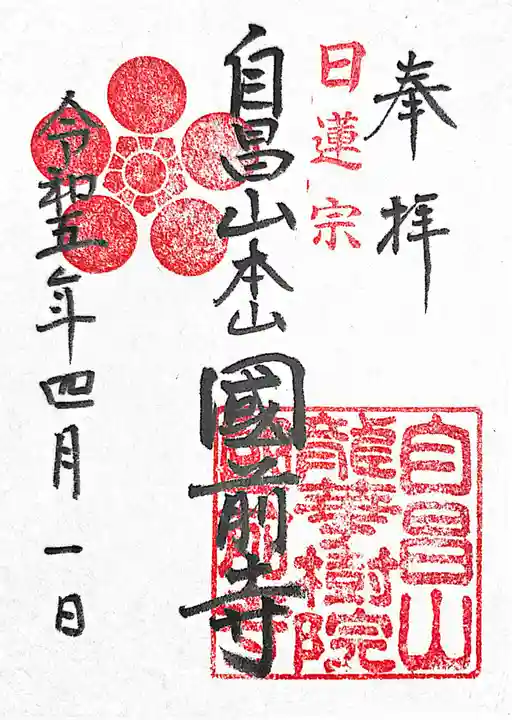 奉拝
日蓮宗
自昌山本山國前寺
令和五年四月一日
自昌山
龍華樹院